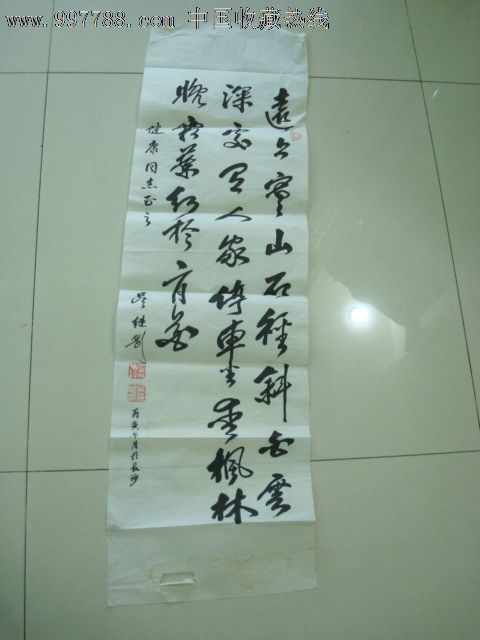 www.997788.com 中国收藏热线
遠上寒山石徑斜白雲
深處有人家停車坐愛楓林
晚霜葉紅於二月花
健康同志正之
丙寅 月於長沙